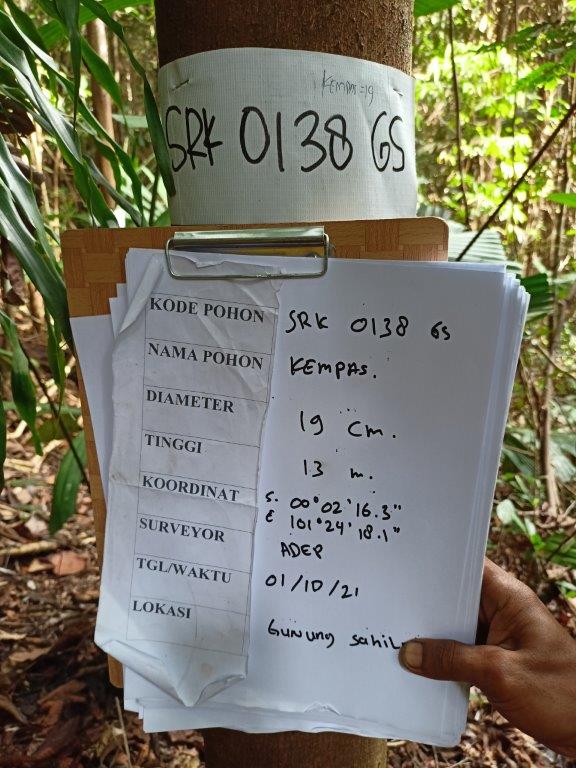 KEMPAS=19
SRK 0138 GS
KODE POHON SRK 0138 GS
NAMA POHON KEMPAS.
DIAMETER 19 cm.
TINGGI 13 m.
KOORDINAT S. 00°02'16.3"
E 101°24'18.1"
SURVEYOR ADEP
TGL/WAKTU 01/10/21
LOKASI Gunung sahil